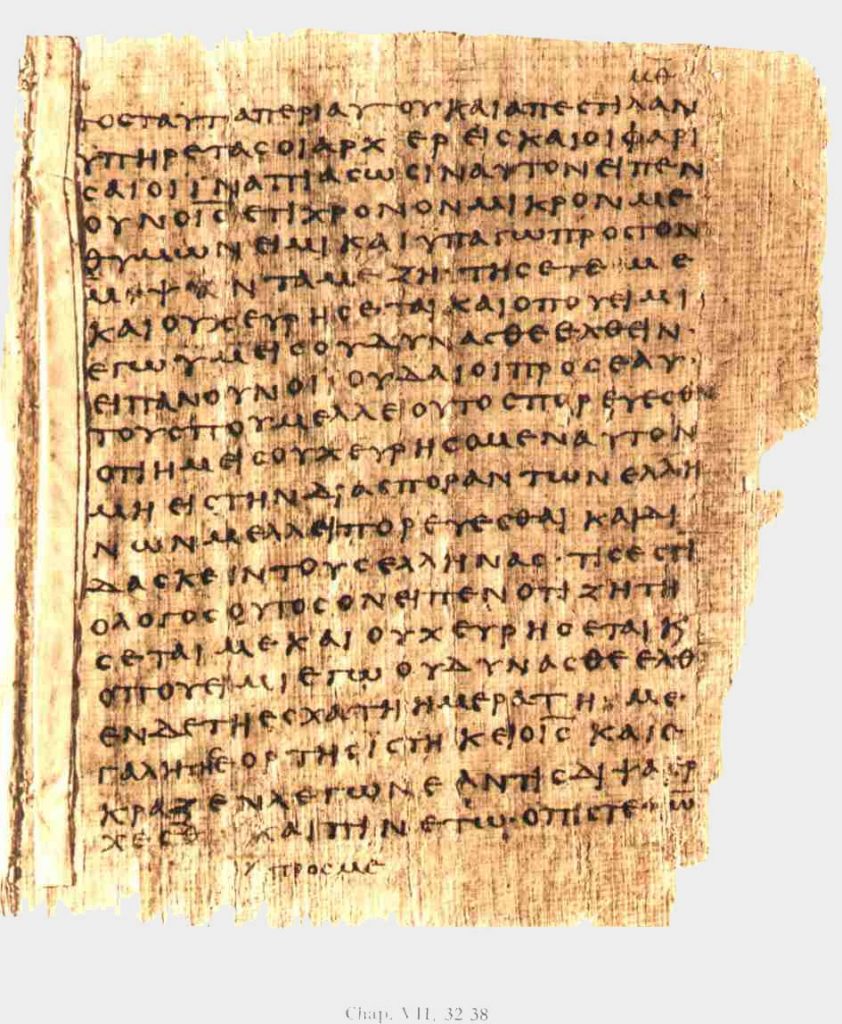 ΜΘ
ΤΟϹΤΑΥΤΑΠΕΡΙΑΥΤΟΥΚΑΙΑΠΕϹΤΙΛΑΝ
ΥΠΗΡΕΤΑϹΟΙΑΡΧΕΡΕΙϹΚΑΙΟΙΦΑΡΙ
ϹΑΙΟΙΙΝΑΠΙΑϹΩϹΙΝΑΥΤΟΝΕΙΠΕΝ
ΟΥΝΟΙ̅Ϲ̅ΕΤΙΧΡΟΝΟΝΜΙΚΡΟΝΜΕ
ΘΥΜΩΝΕΙΜΙΚΑΙΥΠΑΓΩΠΡΟϹΤΟΝ
ΝΤΑΜΕΖΗΤΗϹΕΤΕΜΕ
ΚΑΙΟΥΧΕΥΡΗϹΕΤΑΙΚΑΙΟΠΟΥΕΙΜΙ
ΕΓΩΥΜΕΙϹΟΥΔΥΝΑϹΘΕΕΛΘΕΙΝ·
ΕΙΠΑΝΟΥΝΟΙΙΟΥΔΑΙΟΙΠΡΟϹΕΑΥ·
ΤΟΥϹΠΟΥΜΕΛΛΕΙΟΥΤΟϹΠΟΡΕΥΕϹΘΑΙ
ΟΤΙΗΜΕΙϹΟΥΧΕΥΡΗϹΟΜΕΝΑΥΤΟΝ
ΜΗΕΙϹΤΗΝΔΙΑϹΠΟΡΑΝΤΩΝΕΛΛΗ
ΝΩΝΜΕΛΛΕΙΠΟΡΕΥΕϹΘΑΙΚΑΙΔΙ
ΔΑϹΚΕΙΝΤΟΥϹΕΛΛΗΝΑϹ·ΤΙϹΕϹΤΙ
ΟΛΟΓΟϹΟΥΤΟϹΟΝΕΙΠΕΝΟΤΙΖΗΤΗ
ϹΕΤΑΙΜΕΚΑΙΟΥΧΕΥΡΗϹΕΤΑΙΚ
ΟΠΟΥΕΙΜΙΕΓΩΟΥΔΥΝΑϹΘΕΕΛΘ
ΕΝΔΕΤΗΕϹΧΑΤΗΗΜΕΡΑΤΗΜΕ·
ΓΑΛΗΤΗϹΕΟΡΤΗϹΙϹΤΗΚΕΙΟΙ̅Ϲ̅ΚΑΙΕ
ΚΡΑΖΕΝΛΕΓΩΝΕΑΝΤΙϹΔΙΨΑΕΡ
ΧΕϹΘΩΚΑΙΠΙΝΕΤΩ·ΟΠΙϹΤΕΥΩ̅
ΠΡΟϹΜΕ
Chap. VII, 32-38